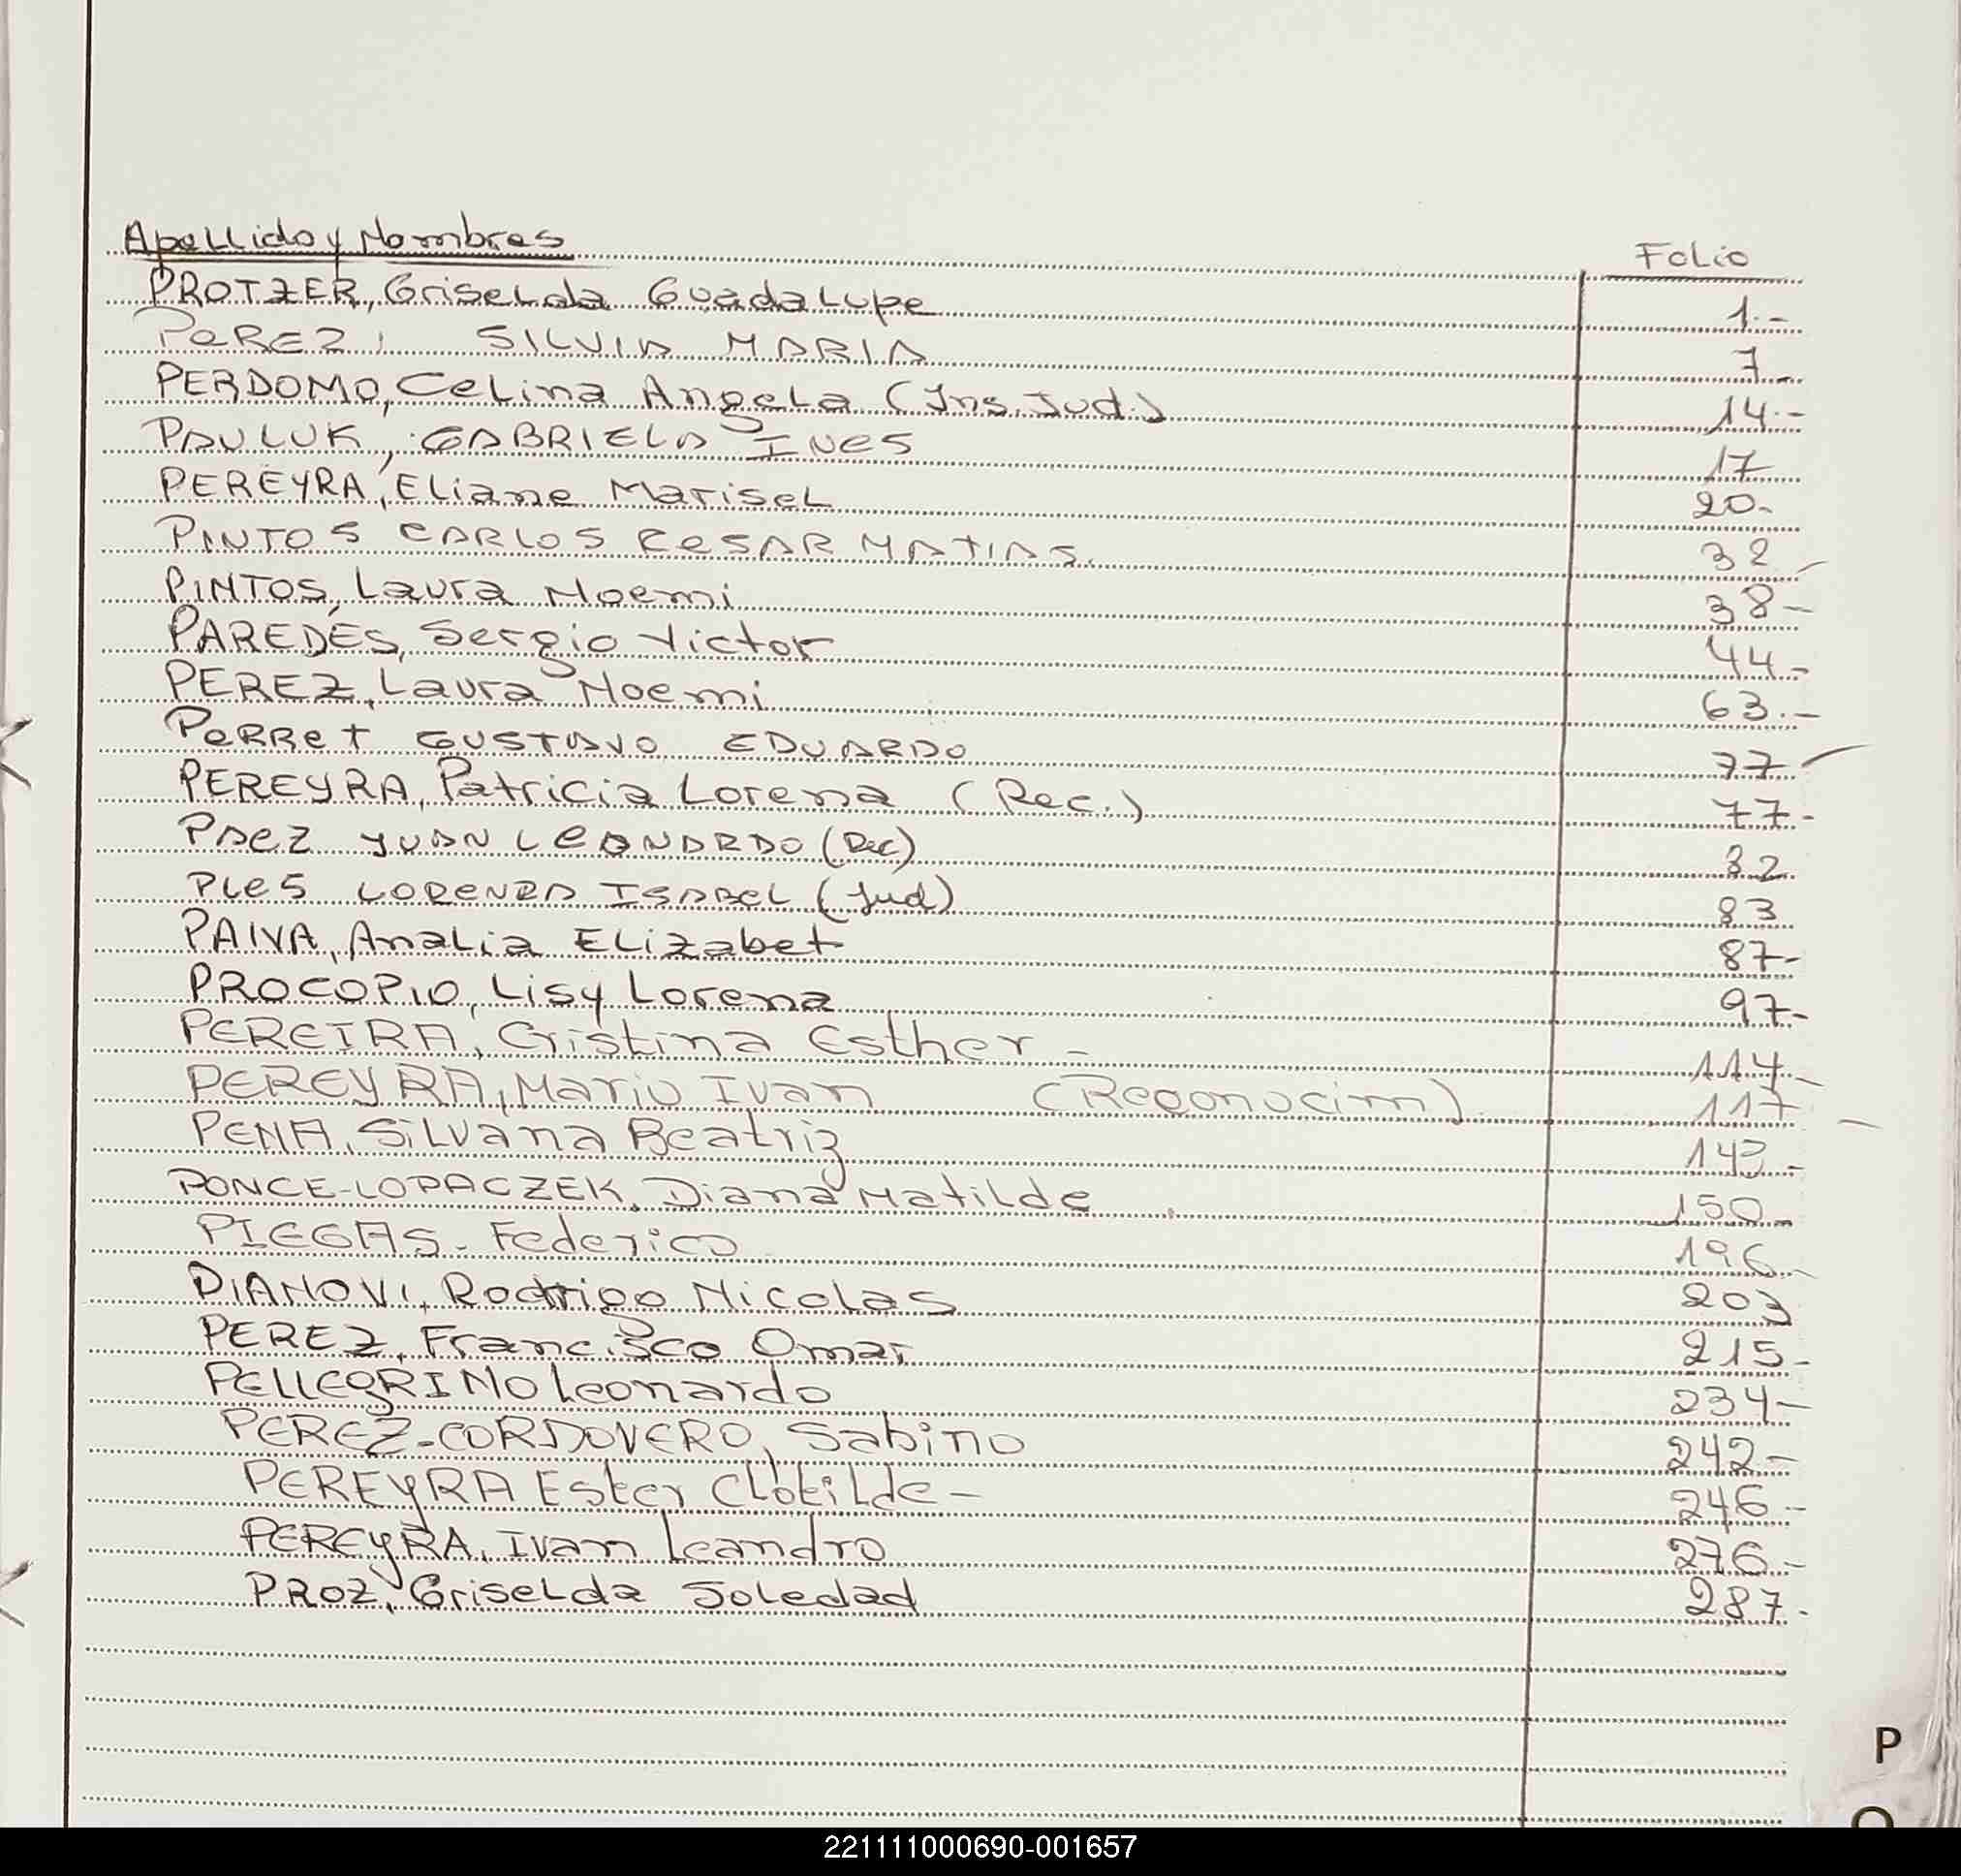 Apellido y Nombres Folio
PROTZER, Griselda Guadalupe 1.-
PeREZ, SILVIA MARIA 7-
PERDOMO, Celina Angela (Ins. Jud.) 14.-
PAULUK, GABRIELA INES 17
PEREYRA, Eliane Marisel 20-
PINTOS CARLOS CESAR MATIAS. 32-
PINTOS, Laura Noemi 38-
PAREDES, Sergio Victor 44-
PEREZ, Laura Noemi 63.-
PeRRet GUSTAVO EDUARDO 77-
PEREYRA, Patricia Lorena (Rec.) 77-
PAeZ JUAN LEONARDO (Rec) 82
PLeS LORENZA ISABEL (Jud) 83
PAIVA, Analia Elizabet 87-
PROCOPIO, Lisy Lorena 97-
PEREIRA, Cristina Esther - 114-
PEREYRA, Mario Ivan (Reconocim) 117-
PENA, Silvana Beatriz 143-
PONCE-LOPACZEK, Diana Matilde 150-
PIEGAS- Federico 196-
PIANOVI, Rodrigo Nicolas 203
PEREZ, Francisco Omar 215-
PELLEGRINO Leonardo 234-
PEREZ-CORDOVERO, Sabino 242-
PEREYRA Ester Clotilde- 246-
PEREYRA, Ivan Leandro 276-
PROZ, Griselda Soledad 287-
P
221111000690-001657